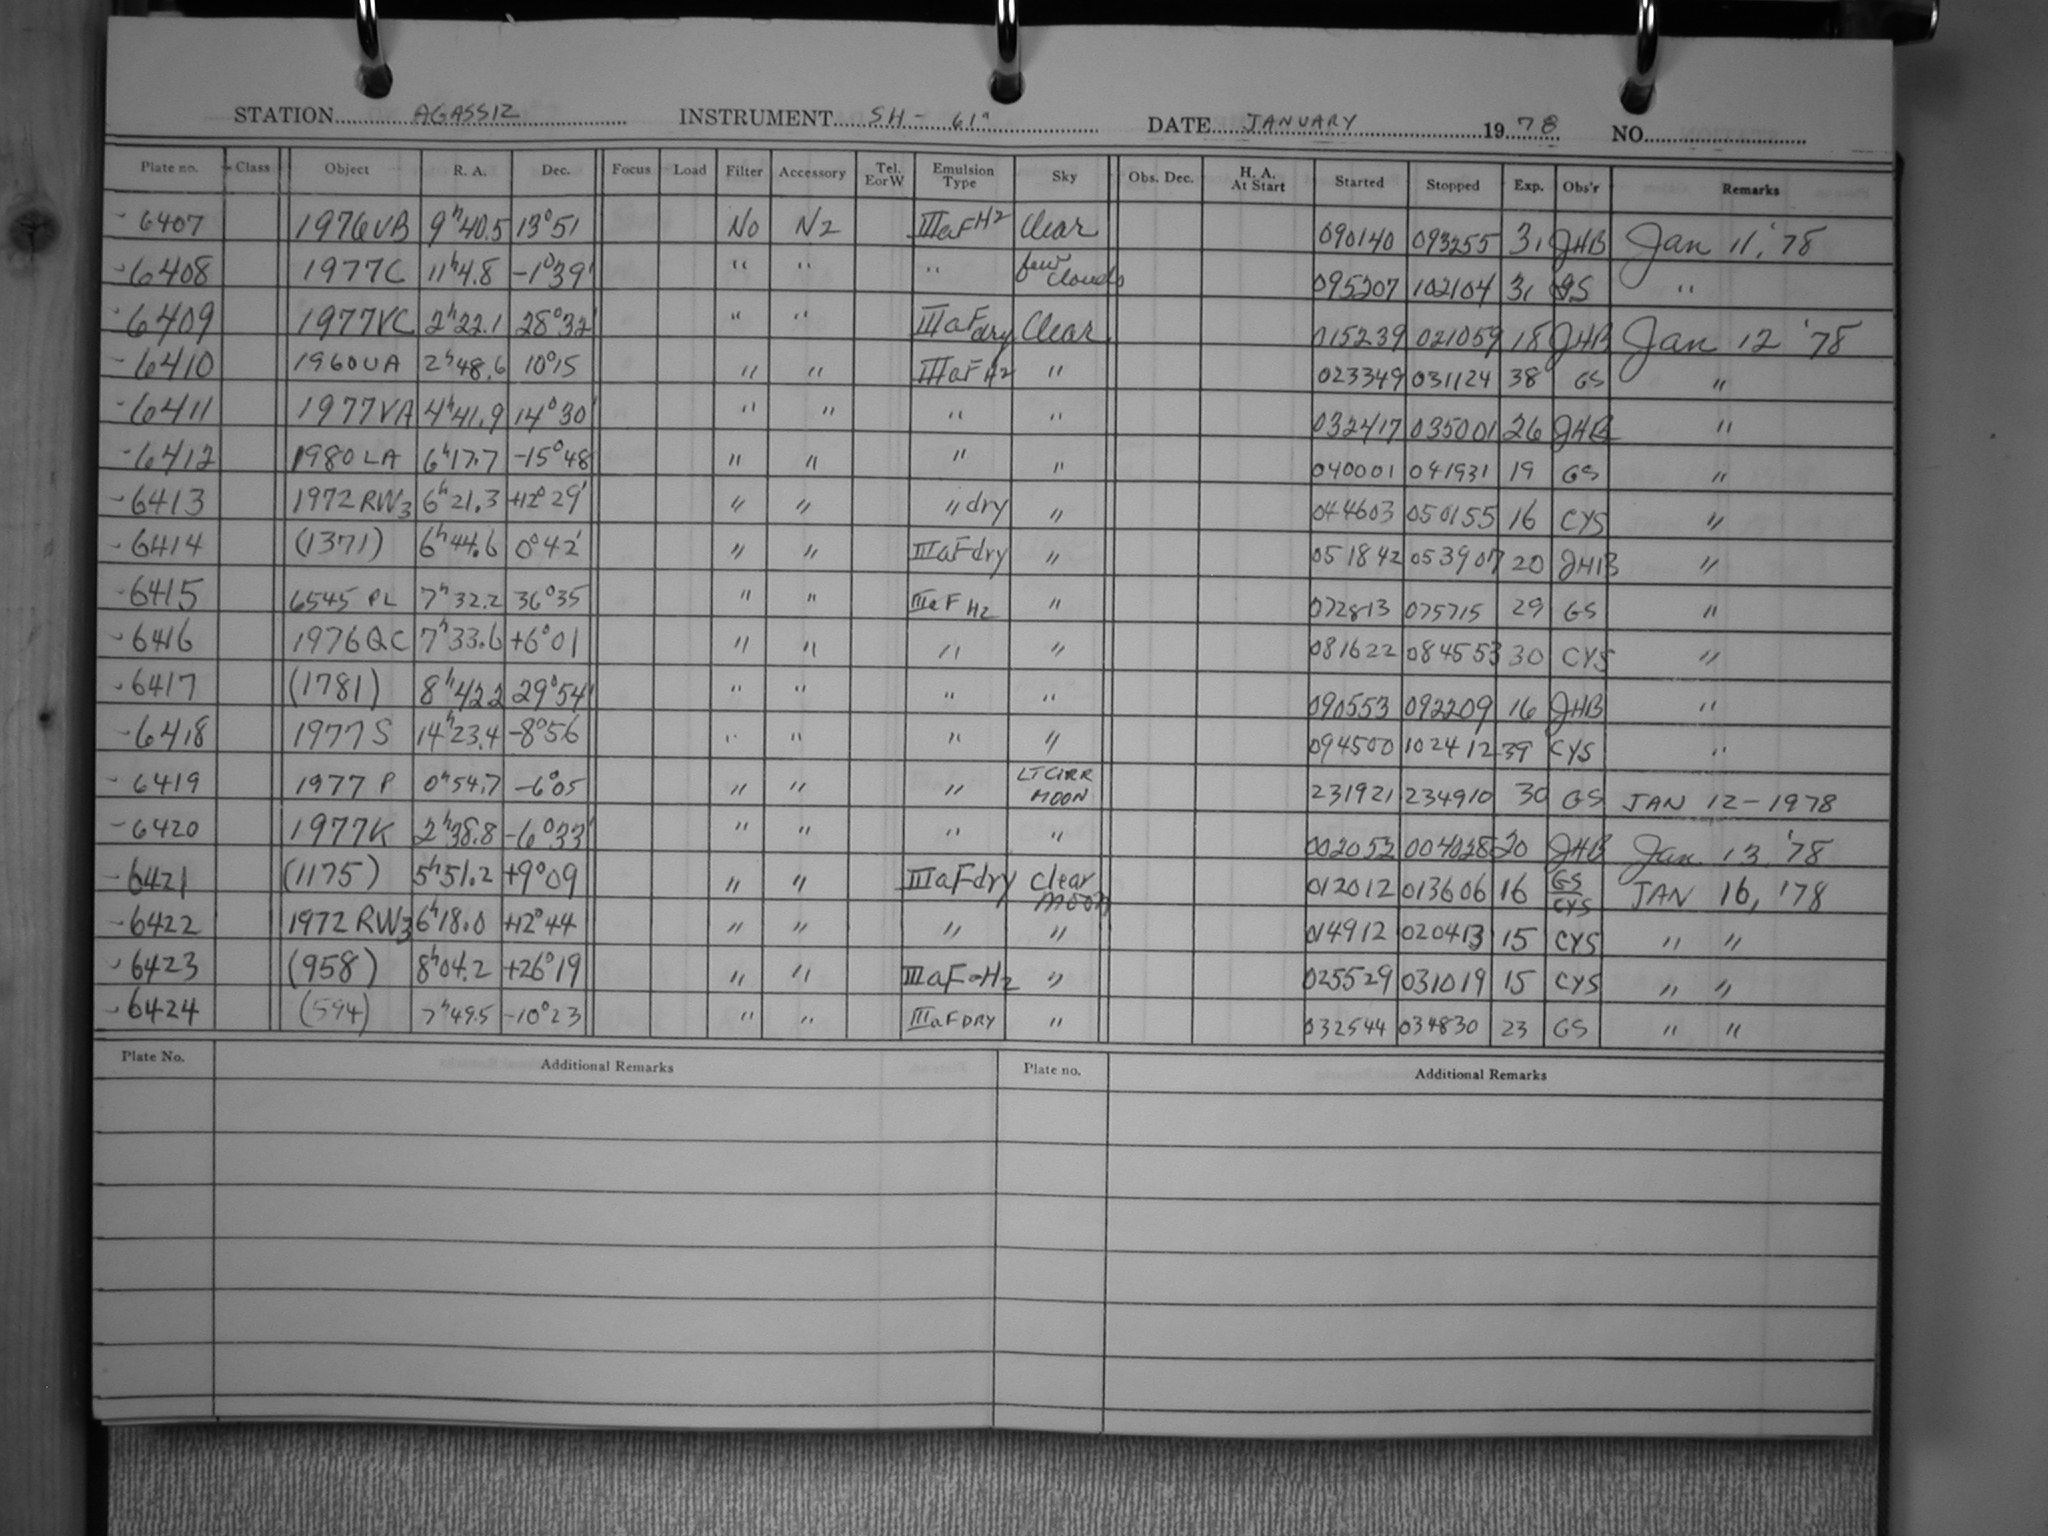 STATION AGASSIZ INSTRUMENT SH - 61" DATE JANUARY 19 78 NO.
Plate no. Class Object R. A. Dec. Focus Load Filter Accessory Tel. E or W Emulsion Type Sky Obs. Dec. H. A. At Start Started Stopped Exp. Obs'r Remarks
- 6407 1976UB 9h40.5 13°51 No N2 IIIaF H2 Clear 090140 093255 31 JHB Jan 11, '78
- 6408 1977C 11h4.8 -1°39' " " " few clouds 095207 102104 31 GS "
- 6409 1977VC 2h22.1 28°32' " " IIIaF dry Clear 015239 021059 18 JHB Jan 12 '78
- 6410 1960UA 2h48.6 10°15 " " IIIaF H2 " 023349 031124 38 GS "
- 6411 1977VA 4h41.9 14°30' " " " " 032417 035001 26 JHB "
- 6412 1980LA 6h17.7 -15°48 " " " " 040001 041931 19 GS "
- 6413 1972RW3 6h21.3 +12°29' " " " dry " 044603 050155 16 CYS "
- 6414 (1371) 6h44.6 0°42' " " IIIaF dry " 051842 053907 20 JHB "
- 6415 6545 PL 7h32.2 36°35 " " IIIaF H2 " 072813 075715 29 GS "
- 6416 1976QC 7h33.6 +6°01 " " " " 081622 084553 30 CYS "
- 6417 (1781) 8h42.2 29°54' " " " " 090553 092209 16 JHB "
- 6418 1977S 14h23.4 -8°56 " " " " 094500 102412 39 CYS "
- 6419 1977 P 0h54.7 -6°05 " " " LT CIRR MOON 231921 234910 30 GS JAN 12-1978
- 6420 1977K 2h38.8 -6°33' " " " " 002052 004028 20 JHB Jan 13 '78
- 6421 (1175) 5h51.2 +9°09 " " IIIaF dry clear moon 012012 013606 16 GS CYS JAN 16, '78
- 6422 1972 RW3 6h18.0 +12°44 " " " " 014912 020413 15 CYS " "
- 6423 (958) 8h04.2 +26°19 " " IIIaF-H2 " 025529 031019 15 CYS " "
- 6424 (594) 7h49.5 -10°23 " " IIIaF DRY " 032544 034830 23 GS " "
Plate No. Additional Remarks Plate no. Additional Remarks